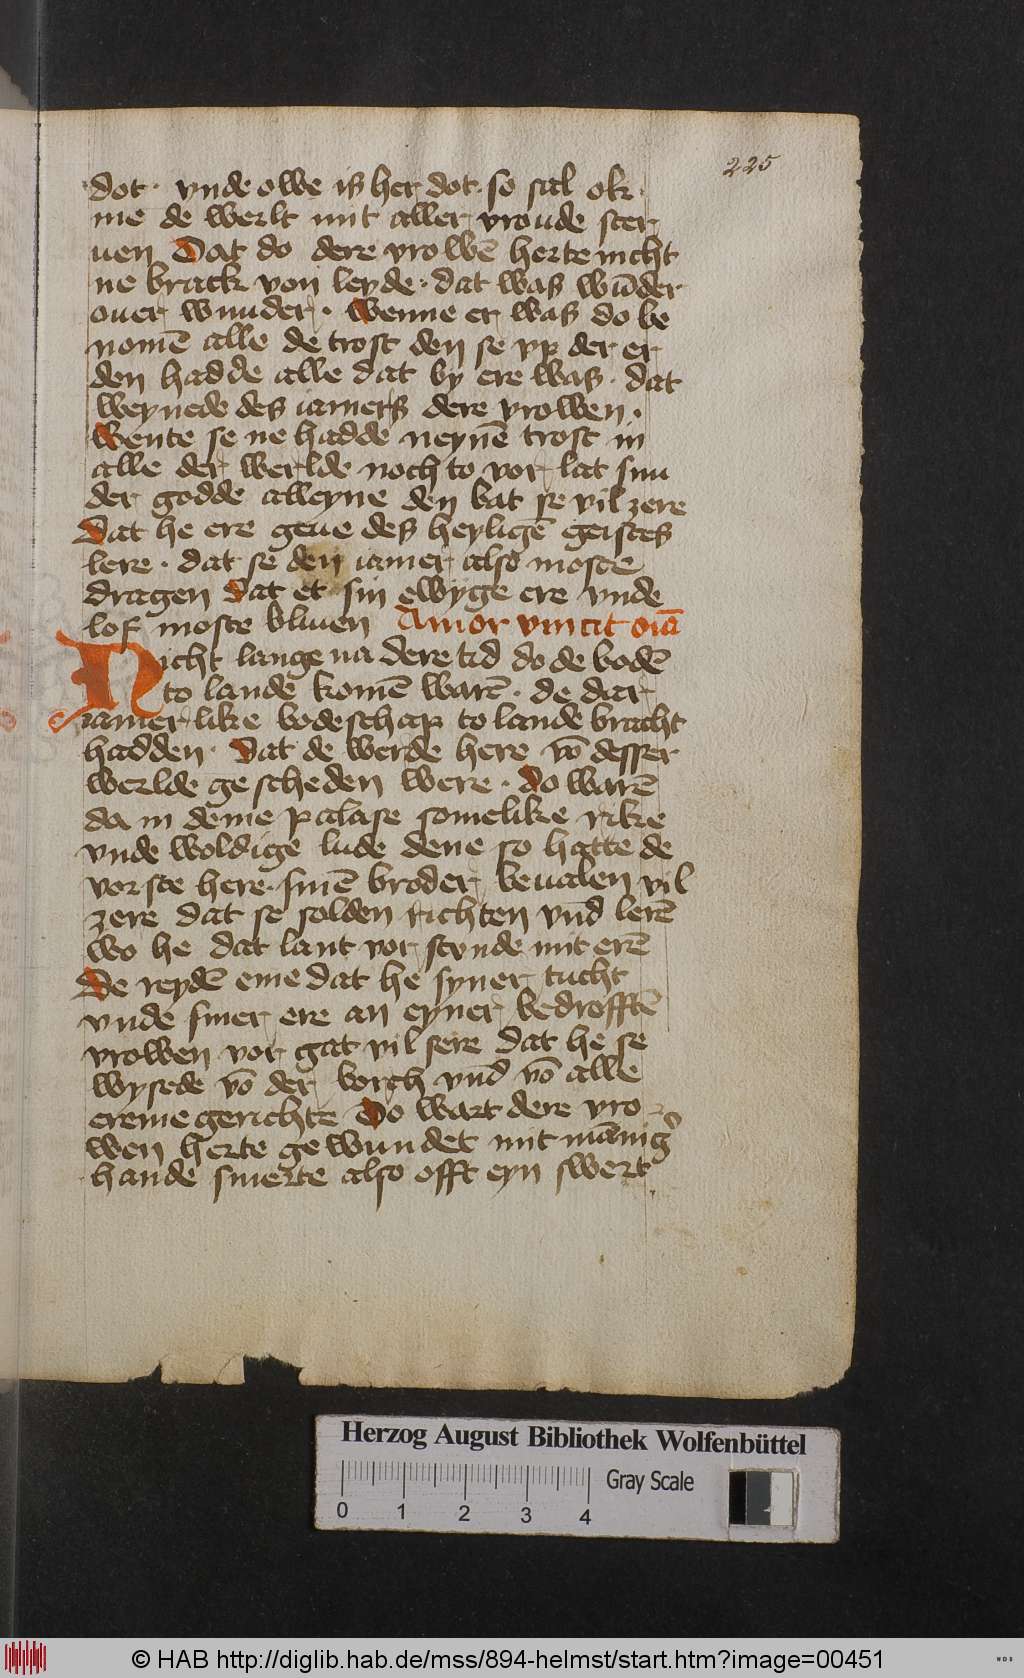 225
dot · vnde owe is her dot · so sal ok ·
me de werlt mit aller vroude ster
uen Dat do dere vrowē herte nicht
ne brack von leyde · dat was wūder
ouer wnnder · Wenne er was do be
nomē alle de trost den se vp der er
den hadde alle dat by ere was · dat
weynede des iamers dere vrowen ·
Wente se ne hadde neynē trost in
alle der werlde noch to vor lat sun
der godde alleyne den bat se vil zere
Dat he ere geue des heyligē geistes
lere · dat se den iamer also moste
dragen Dat et sin ewyge ere vnde
lof moste bliuen Amor vincit oīa
Nicht lange na dere tid do de bodē
to lande komē warē · de dar
iamer like bodeschap to lande bracht
hadden · Dat de werde here vō desser
werlde gescheden were · Do warē
da in deme palase somelike rike
vnde woldige lude dene so hatte de
vorste here · sinē broder beualen vil
zere dat se solden richten vnd lerē
wo he dat lant vor stvnde mit erē
De reydē eme dat he syner tucht
vnde siner ere an eyner bedrofftē
vrowen vor gat vil sere dat he se
wysede vō der borch vnd vō alle
ereme gerichte Do wart dere vro
wen herte gewundet mit mānig
hande smerte also offt eyn swert
Herzog August Bibliothek Wolfenbüttel
Gray Scale
0 1 2 3 4
© HAB http://diglib.hab.de/mss/894-helmst/start.htm?image=00451